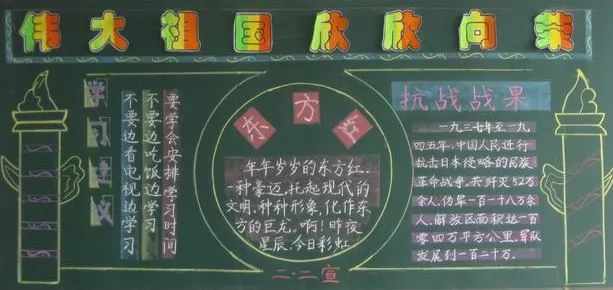 伟大祖国欣欣向荣
学习建议
要学会安排学习时间
不要边吃饭边学习
不要边看电视边学习
东方红
年年岁岁的东方红,
一种豪迈,托起现代的
文明,种种形象,化作东
方的巨龙。啊!昨夜
星辰,今日彩虹
二·二宣
抗战战果
一九三七年至一九
四五年,中国人民进行
抗击日本侵略的民族
革命战争,共歼灭52万
余人,伪军一百一十八万余
人,解放区面积达一百
零四万平方公里,军队
发展到一百二十万.